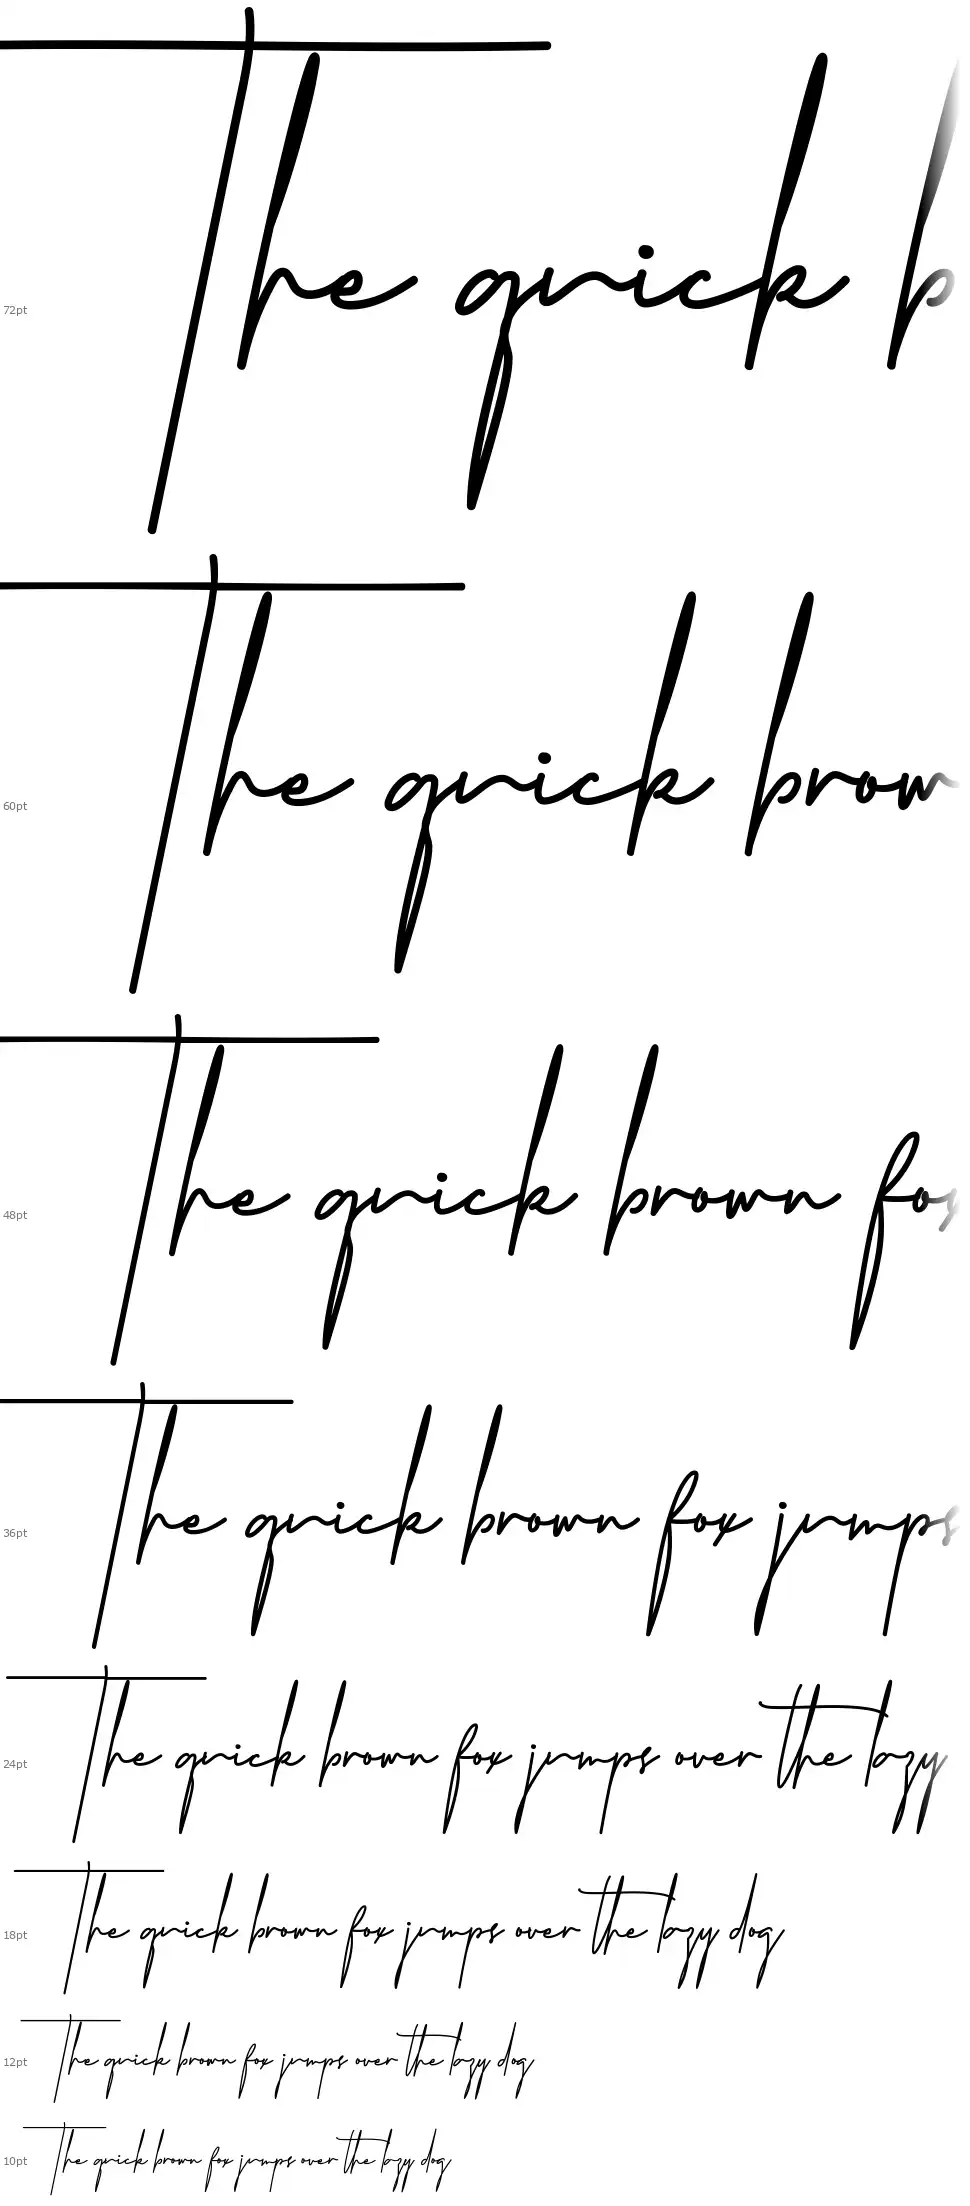 The quick b
72pt
The quick brow
60pt
The quick brown fox
48pt
The quick brown fox jumps
36pt
The quick brown fox jumps over the lazy
24pt
The quick brown fox jumps over the lazy dog
18pt
The quick brown fox jumps over the lazy dog
12pt
The quick brown fox jumps over the lazy dog
10pt